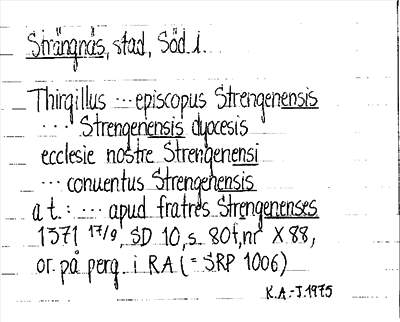 Strängnäs, stad, Söd l.
Thirgillus ... episcopus Strengenensis
... Strengenensis dyocesis
ecclesie nostre Strengenensi
... conuentus Strengenensis
a t.: ... apud fratres Strengenenses
1371 17/9, SD 10, s. 80f, nr X 88,
or. på perg. i RA (= SRP 1006)
K.A.-J. 1975